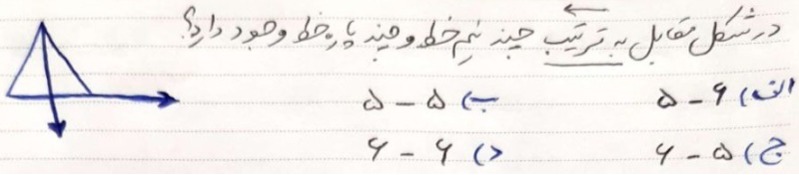 در شکل مقابل به ترتیب چند نیم خط و چند پاره خط وجود دارد؟
الف) ۶ - ۵ ب) ۵ - ۵
ج) ۵ - ۶ د) ۶ - ۶